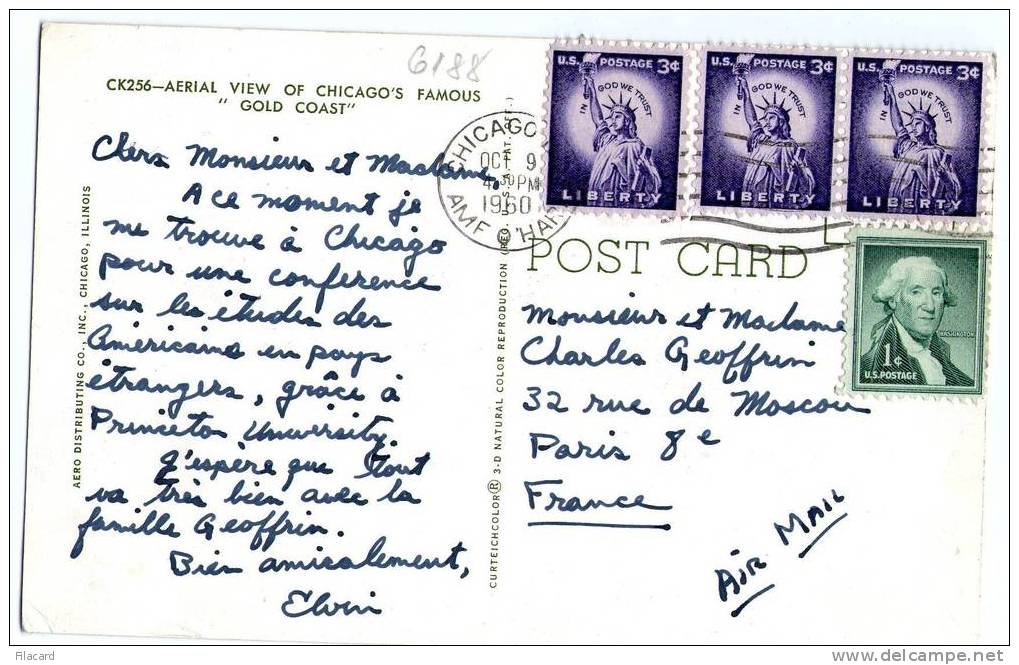 6188
CK256—AERIAL VIEW OF CHICAGO'S FAMOUS
" GOLD COAST"
Chers Monsieur et Madame,
A ce moment je
me trouve à Chicago
pour une conference
sur les études des
Américains en pays
étrangers, grâce à
Princeton University.
J'espère que tout
va très bien avec la
famille Geoffrin.
Bien amicalement,
Elvin
AERO DISTRIBUTING CO., INC., CHICAGO, ILLINOIS
CURTEICHCOLOR® 3-D NATURAL COLOR REPRODUCTION (REG. U.S.A. PAT. OFF.)
CHICAGO
OCT 9
4:30 PM
1960
AMF O'HAR
U.S. POSTAGE 3¢
IN GOD WE TRUST
LIBERTY
U.S. POSTAGE 3¢
IN GOD WE TRUST
LIBERTY
U.S. POSTAGE 3¢
IN GOD WE TRUST
LIBERTY
POST CARD
WASHINGTON
1¢
U.S. POSTAGE
Monsieur et Madame
Charles Geoffrin
32 rue de Moscou
Paris 8e
France
AIR MAIL
Filacard
www.delcampe.net